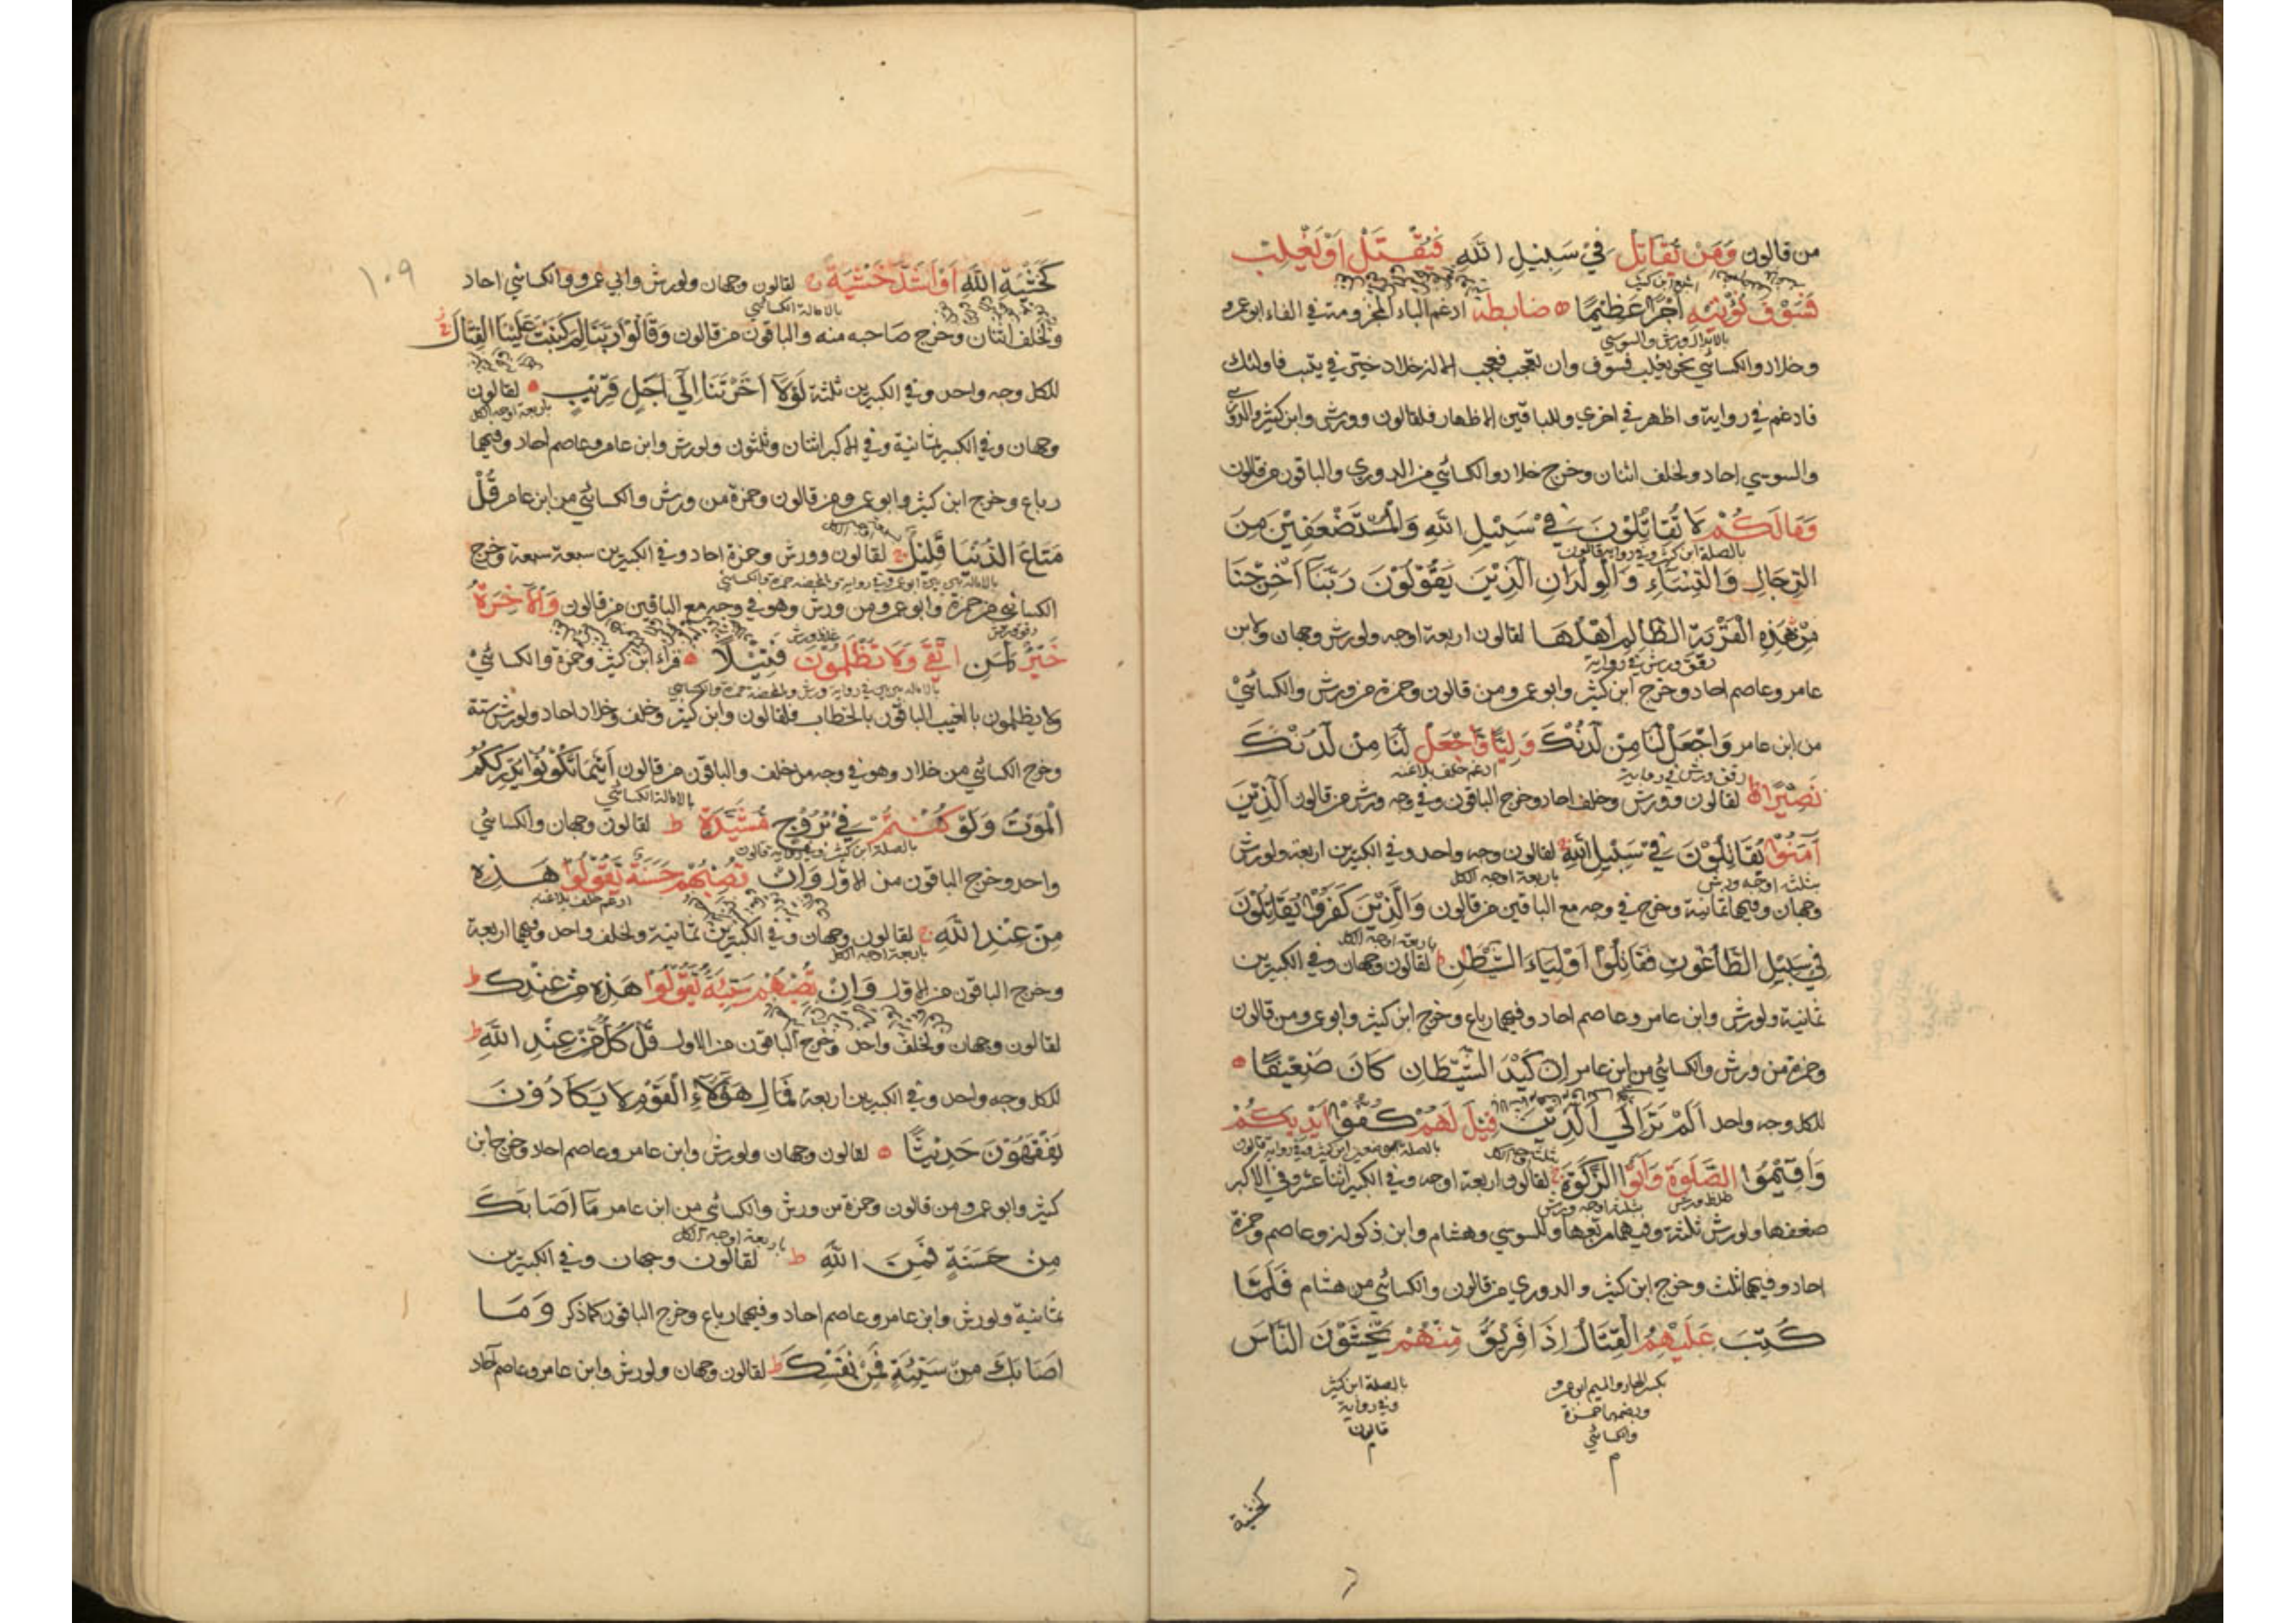 من قالون وَمَنْ يُقَاتِلْ فِيْ سَبِيْلِ اللَّهِ فَيُقْتَلْ اَوْ يَغْلِبْ
فَسَوْفَ نُؤْتِيْهِ اَجْرًا عَظِيْمًا ه ضابطة ادغم الباء المجزومة في الفاء ابوعمرو
بالابدال ورش والسوسي
وخلاد والكسائي نحو يغلب فسوف وان تعجب فعجب الا ان خلاد خيّر في يتب فاولئك
فادغم في رواية واظهر في اخري وللباقين الاظهار فلقالون وورش وابن كثير والدوري
والسوسي احاد ولخلف اثنان وخرج خلاد والكسائي من الدوري والباقون من قالون
وَمَالَكُمْ لَا تُقَاتِلُوْنَ فِيْ سَبِيْلِ اللهِ وَالْمُسْتَضْعَفِيْنَ مِنَ
بالصلة ابن كثير وفي رواية قالون
الرِّجَالِ وَالنِّسَاءِ وَالْوِلْدَانِ الَّذِيْنَ يَقُوْلُوْنَ رَبَّنَا اَخْرِجْنَا
مِنْ هَذِهِ الْقَرْيَةِ الظَّالِمِ اَهْلُهَا لقالون اربعة اوجه ولورش وجهان ولابن
رقق ورش في رواية
عامر وعاصم احاد وخرج ابن كثير وابوعمرو من قالون وحمزة من ورش والكسائي
من ابن عامر وَاجْعَلْ لَنَا مِنْ لَدُنْكَ وَلِيًّا وَاجْعَلْ لَنَا مِنْ لَدُنْكَ
ادغم خلف بلاغنه
رقق ورش في رواية
نَصِيْرًا ط لقالون وورش وخلف احاد وخرج الباقون وفي وجه ورش من قالون اَلَّذِيْنَ
آمَنُوْا يُقَاتِلُوْنَ فِيْ سَبِيْلِ اللهِ ج لقالون وجه واحد وفي الكبيرين اربعة ولورش
بثلثة اوجه ورش
باربعة اوجه الكل
وجهان وفيهما ثمانية وخرج في وجه مع الباقين من قالون وَالَّذِيْنَ كَفَرُوْا يُقَاتِلُوْنَ
فِيْ سَبِيْلِ الطَّاغُوْتِ فَقَاتِلُوْا اَوْلِيَاءَ الشَّيْطَنِ لقالون وجهان وفي الكبيرين
باربعة اوجه الكل
ثمانية ولورش وابن عامر وعاصم احاد وفيهما رباع وخرج ابن كثير وابوعمرو من قالون
وحمزة من ورش والكسائي من ابن عامر اِنَّ كَيْدَ الشَّيْطَانِ كَانَ ضَعِيْفًا ه
للكل وجه واحد اَلَمْ تَرَ اِلَى الَّذِيْنَ قِيْلَ لَهُمْ كُفُّوْا اَيْدِيَكُمْ
وَاَقِيْمُوا الصَّلٰوةَ وَآتُوا الزَّكٰوةَ ج لقالون اربعة اوجه وفي الكبير اثنا عشر وفي الاكبر
غلظ ورش
بثلثة اوجه ورش
ضعفها ولورش ثلثة وفيهما تسعها وللسوسي وهشام وابن ذكوان وعاصم وحمزة
احاد وفيهما ثلث وخرج ابن كثير والدوري من قالون والكسائي من هشام فَلَمَّا
كُتِبَ عَلَيْهِمُ الْقِتَالُ اِذَا فَرِيْقٌ مِنْهُمْ يَخْشَوْنَ النَّاسَ
بكسر الهاء والميم ابوعمرو
وبضمهما حمزة
والكسائي
م
بالصلة ابن كثير
وفي رواية
قالون
م
كخشية
١٠٩
كَخَشْيَةِ اللَّهِ اَوْ اَشَدَّ خَشْيَةً لقالون وجهان ولورش وابي عمرو والكسائي احاد
بالامالة الكسائي
ولخلف اثنان وخرج صاحبه منه والباقون من قالون وَقَالُوْا رَبَّنَا لِمَ كَتَبْتَ عَلَيْنَا الْقِتَالَ ج
للكل وجه واحد وفي الكبيرين ثلثة لَوْلَا اَخَّرْتَنَا اِلَى اَجَلٍ قَرِيْبٍ ه لقالون
باربعة اوجه الكل
وجهان وفي الكبير ثمانية وفي الاكبر اثنان وثلثون ولورش وابن عامر وعاصم احاد وفيهما
رباع وخرج ابن كثير وابوعمرو من قالون وحمزة من ورش والكسائي من ابن عامر قُلْ
مَتَاعُ الدُّنْيَا قَلِيْلٌ ج لقالون وورش وحمزة احاد وفي الكبيرين سبعة سبعة وخرج
الكسائي من حمزة وابوعمرو من ورش وهو في وجه مع الباقين من قالون وَالْآخِرَةُ
رقق ورش
غلظ ورش
خَيْرٌ لِمَنِ اتَّقَى وَلَا تُظْلَمُوْنَ فَتِيْلًا ه قراء ابن كثير وحمزة والكسائي
ولا يظلمون بالغيب الباقون بالخطاب فلقالون وابن كثير وخلف وخلاد احاد ولورش ستة
وخرج الكسائي من خلاد وهو في وجه من خلف والباقون من قالون اَيْنَمَا تَكُوْنُوْا يُدْرِكْكُمُ
بالامالة الكسائي
الْمَوْتُ وَلَوْ كُنْتُمْ فِيْ بُرُوْجٍ مُشَيَّدَةٍ ط لقالون وجهان والكسائي
بالصلة ابن كثير وفي رواية قالون
واحد وخرج الباقون من الاول وَاِنْ تُصِبْهُمْ حَسَنَةٌ يَقُوْلُوْا هَذِهِ
ادغم خلف بلاغنه
مِنْ عِنْدِ اللهِ ج لقالون وجهان وفي الكبيرين ثمانية ولخلف واحد وفيهما اربعة
باربعة اوجه الكل
وخرج الباقون من الاول وَاِنْ تُصِبْهُمْ سَيِّئَةٌ يَقُوْلُوْا هَذِهِ مِنْ عِنْدِكَ ط
لقالون وجهان ولخلف واحد وخرج الباقون من الاول قُلْ كُلٌّ مِنْ عِنْدِ اللهِ ط
للكل وجه واحد وفي الكبيرين اربعة فَمَالِ هَؤُلَاءِ الْقَوْمِ لَا يَكَادُوْنَ
يَفْقَهُوْنَ حَدِيْثًا ه لقالون وجهان ولورش وابن عامر وعاصم احاد وخرج ابن
كثير وابوعمرو من قالون وحمزة من ورش والكسائي من ابن عامر مَا اَصَابَكَ
باربعة اوجه الكل
مِنْ حَسَنَةٍ فَمِنَ اللهِ ط لقالون وجهان وفي الكبيرين
ثمانية ولورش وابن عامر وعاصم احاد وفيهما رباع وخرج الباقون كما ذكر وَمَا
اَصَابَكَ مِنْ سَيِّئَةٍ فَمِنْ نَفْسِكَ ط لقالون وجهان ولورش وابن عامر وعاصم آحاد